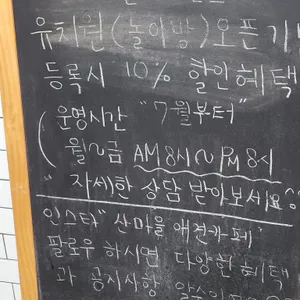 유치원(놀이방)오픈기
등록시 10% 할인혜택
운영시간 "7월부터"
(월~금 AM 8시~PM 8시
"자세한 상담 받아보세요^^
인스타"산마을 애견카페'
팔로우 하시면 다양한 혜택
과 공지사항 알